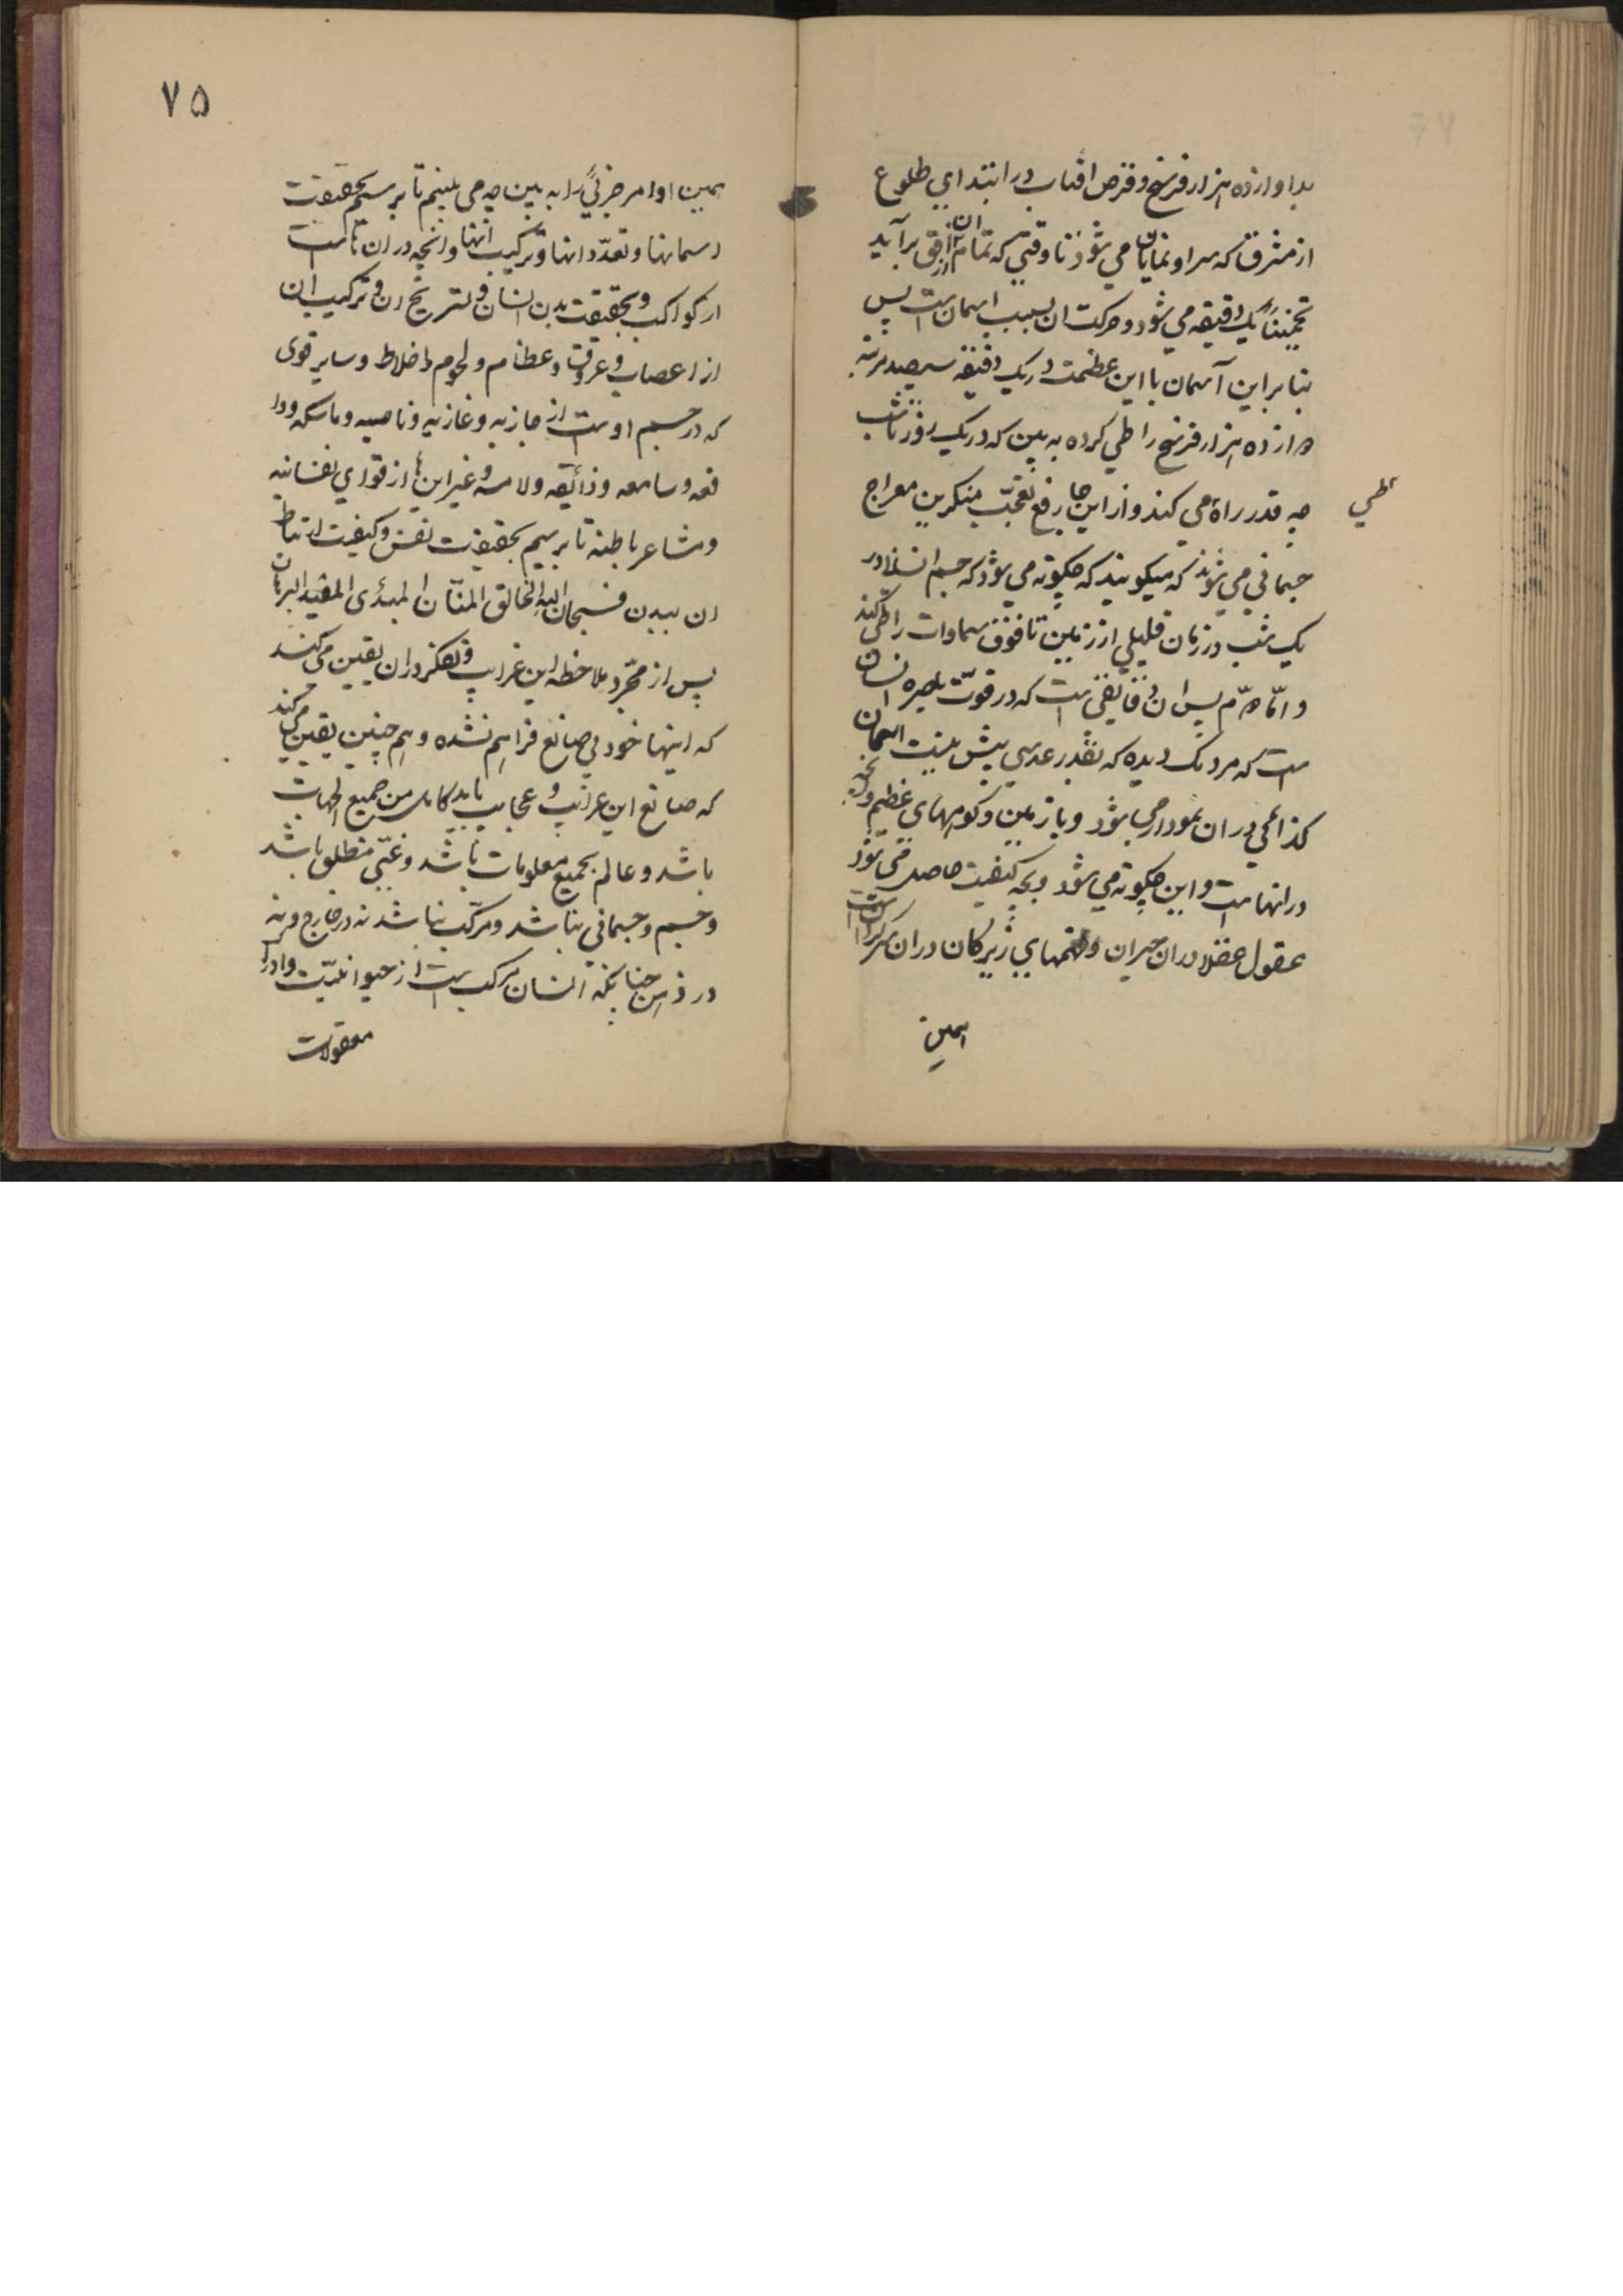 بدا دوازده هزار فرسخ و قرص افتاب در ابتدای طلوع
از مشرق که سر او نمایان می شود تا وقتی که تمام ان از افق برآید
تخمیناً یک دقیقه می شود و حرکت ان بسبب اسمان است پس
بنا براین آسمان با این عظمت در یک دقیقه سیصد مرتبه
دوازده هزار فرسخ را طی کرده به بین که در یک روز تا شب
چه قدر راه می کند و از این جا رفع تعجّب منکرین معراج
طی
جسمانی می شود که میکویند که چکونه می شود که جسم انسان در
یک شب در زمان قلیلی از زمین تا فوق سماوات را طی کند
و امّا دوّم پس ان دقایقی است که در قوّت باصره انسان
است که مردمک دیده که بقدر عدسی بیش نیست اسمان
کذائی در ان نمودار می شود و باز زمین و کوههای عظیم و انچه
در انها است و این چکونه می شود و بچه کیفیت حاصل می شود
عقول عقلا در ان حیران و فهمهای زیرکان در ان سرکردان است
همین
۷۵
همین اوامر جزئی را به بین چه می بینیم تا برسیم بحقیقت
اسمانها و تعدّد انها و ترکیب انها و انچه در ان ها است
از کواکب و بحقیقت بدن انسان و تشریح ان و ترکیب ان
از اعصاب و عروق و عظام و لحوم و اخلاط و سایر قوی
که در جسم اوست از جازبه و غازیه و نامیه و ماسکه و دا
فعه و سامعه و ذائقه و لامسه و غیر این ها از قوای نفسانیه
و مشاعر باطنه تا برسیم بحقیقت نفس و کیفیت ارتباط
ان ببدن فسبحان الله الخالق المنّان المبدئ المفید البرهان
پس از مجرّد ملاحظه این غرایب و تفکر در ان یقین می کند
که اینها خود بی صانع فراهم نشده و هم چنین یقین می کند
که صانع این غرایب و عجایب باید کامل من جمیع الجهات
باشد و عالم بجمیع معلومات باشد و غنّی مطلق باشد
و جسم و جسمانی نباشد و مرکّب نباشد نه در خارج و نه
در ذهن چنانکه انسان مرکب است از حیوانیّت و ادراک
معقولات